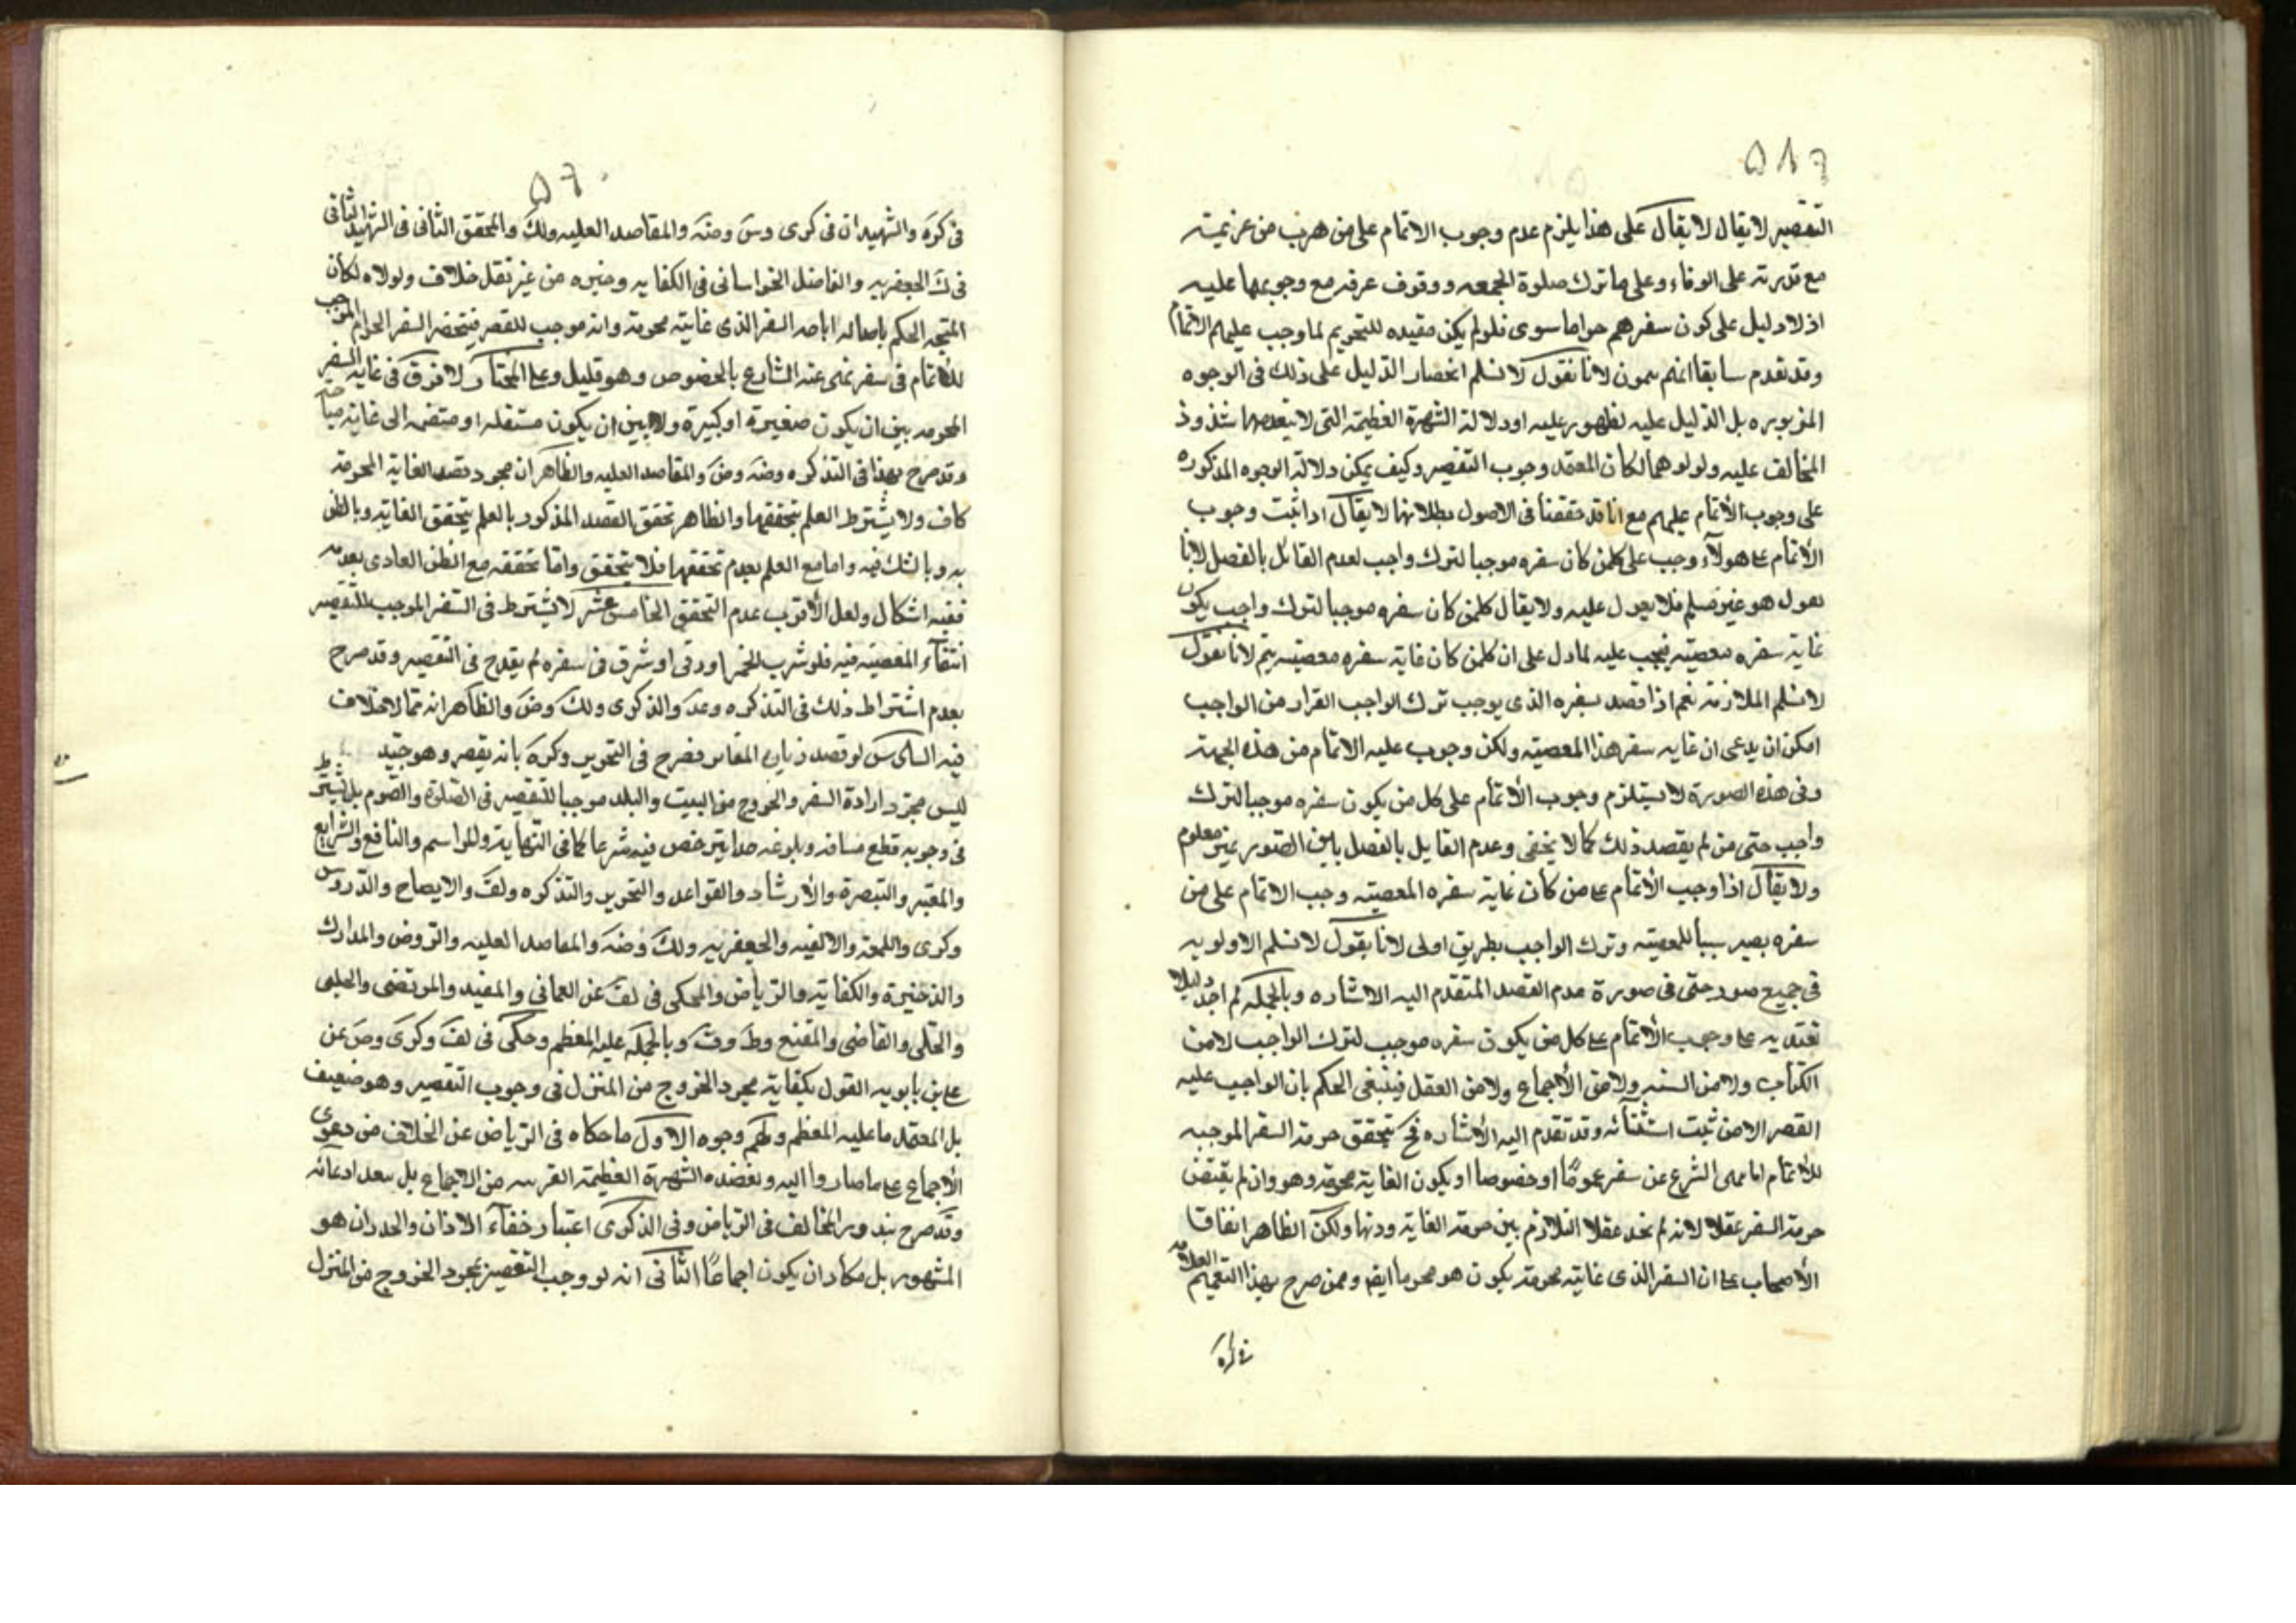 ٥١٦
التقصير لا يقال لا يقال على هذا يلزم عدم وجوب الاتمام على من هرب من عزيمته
مع قدرته على الوفاء وعلى ما ترك صلوة الجمعه ووقوف عرفه مع وجوبها عليه
اذ لا دليل على كون سفرهم حراما سوى فلو لم يكن مفيده للتحريم لما وجب عليهم الاتمام
وقد تقدم سابقا انهم يتمون لانا نقول لا نسلم انحصار الدليل على ذلك فى الوجوه
المزبوره بل الدليل عليه لظهور عليه او دلالة الشهرة العظيمة التى لا شذوذ
المخالف عليه ولو لو هما لكان المعتمد وجوب التقصير وكيف يمكن دلالة الوجوه المذكوره
على وجوب الأتمام عليهم مع انا قد حققنا فى الاصول بطلانها لا يقال اذا ثبت وجوب
الأتمام على هولآء وجب على كلمن كان سفره موجبا لترك واجب لعدم القائل بالفصل لانا
نقول هو غير مسلم فلا يعول عليه ولا يقال كلمن كان سفره موجبا لترك واجب يكون
غاية سفره معصيته فيجب عليه لما دل على ان كلمن كان غاية سفره معصيته يتم لانا نقول
لا نسلم الملازمة نعم اذا قصد بسفره الذى يوجب ترك الواجب الفرار من الواجب
امكن ان يدعى ان غايه سفر هذا المعصيته ولكن وجوب عليه الاتمام من هذه الجهة
وفى هذه الصورة لا يستلزم وجوب الأتمام على كل من يكون سفره موجبا لترك
واجب حتى من لم يقصد ذلك كما لا يخفى وعدم القايل بالفصل بين الصور غير معلوم
ولا يقال اذا وجب الأتمام على من كان غاية سفره المعصيته وجب الاتمام على من
سفره يصير سببا للمعصيته وترك الواجب بطريق اولى لانا نقول لا نسلم الاولويه
فى جميع صور حتى فى صورة عدم القصد المتقدم اليه الاشاره وبالجمله لم اجد دليلا
نعتد به على وجوب الأتمام على كل من يكون سفره موجب لترك الواجب لا من
الكتاب ولا من السنه ولا من الأجماع ولا من العقل فينبغى الحكم بان الواجب عليه
القصر الا من ثبت استثنائه وقد تقدم اليه الأشاره فح يتحقق حرمة السفر الموجبه
للأتمام اما بنهى الشرع عن سفر عموما او خصوصا او يكون الغاية محرمة وهو وان لم يقتض
حرمة السفر عقلا لانه لم نجد عقلا التلازم بين حرمة الغاية وذيها ولكن الظاهر اتفاق
الأصحاب على ان السفر الذى غايته محرمة يكون هو محرما ايضا وممن صرح بهذا التعميم العلامه
فى كره
٥٦٠
فى كره والشهيدان فى كرى وس وضه والمقاصد العليه ولك والمحقق الثانى فى الشهيد الثانى
فى ك الجعفريه والفاضل الخراسانى فى الكفايه وغيره من غير نقل خلاف ولولاه لكان
المتجه الحكم باصاله اباحه السفر الذى غايته محرمة وانه موجب للقصر فينحصر السفر الحرام الموجب
للأتمام فى سفر نهى عنه الشارع بالخصوص وهو قليل وعلى المختار لا فرق فى غاية السفر
المحرمه بين ان يكون صغيرة او كبيرة ولا بين ان يكون مستقله او منضمه الى غاية
وقد صرح بهذا فى التذكره وضه وض والمقاصد العليه والظاهر ان مجرد قصد الغاية المحرمة
كاف ولا يشترط العلم بتحققها والظاهر تحقق القصد المذكور بالعلم بتحقق الغاية وبالظن
به وبالشك فيه واما مع العلم بعدم تحققها فلا يتحقق واما تحققه مع الظن العادى بعدمه
ففيه اشكال ولعل الأقرب عدم التحقق الخامس عشر لا يشترط فى السفر الموجب للتقصير
انتفآء المعصيته فيه فلو شرب الخمر او زنى او سرق فى سفره لم يقدح فى التقصير وقد صرح
بعدم اشتراط ذلك فى التذكره وعد والذكرى ولك وض والظاهر انه مما لا خلاف
فيه السادس لو قصد زيارة المقابر فصرح فى التحرير وكره بانه يقصر وهو جيد
ليس مجرد ارادة السفر والخروج من البيت والبلد موجبا للتقصير فى الصلوة والصوم بل يشترط
فى وجوبه قطع مسافه وبلوغه حدا يترخص فيه شرعا كما فى النهاية والمراسم والنافع والشرايع
والمعتبر والتبصرة والأرشاد والقواعد والتحرير والتذكره ولف والايضاح والدروس
وكرى واللمعة والالفيه والجعفريه ولك وضه والمقاصد العليه والروض والمدارك
والذخيرة والكفاية والرياض والمحكى فى لف عن العمانى والمفيد والمرتضى والحلبى
والحلى والقاضى والمقنع وط وف وبالجمله عليه المعظم وحكى فى لف وكرى وض عن
على بن بابويه القول بكفاية مجرد الخروج من المنزل فى وجوب التقصير وهو ضعيف
بل المعتمد ما عليه المعظم ولهم وجوه الاول ما حكاه فى الرياض عن الخلاف من دعوى
الأجماع على ما صاروا اليه ويعضده الشهرة العظيمة القريبه من الاجماع بل بعد ادعائه
وقد صرح بندور المخالف فى الرياض وفى الذكرى اعتبار خفآء الاذان والجدران هو
المشهور بل كاد ان يكون اجماعا الثانى انه لو وجب التقصير بمجرد الخروج من المنزل